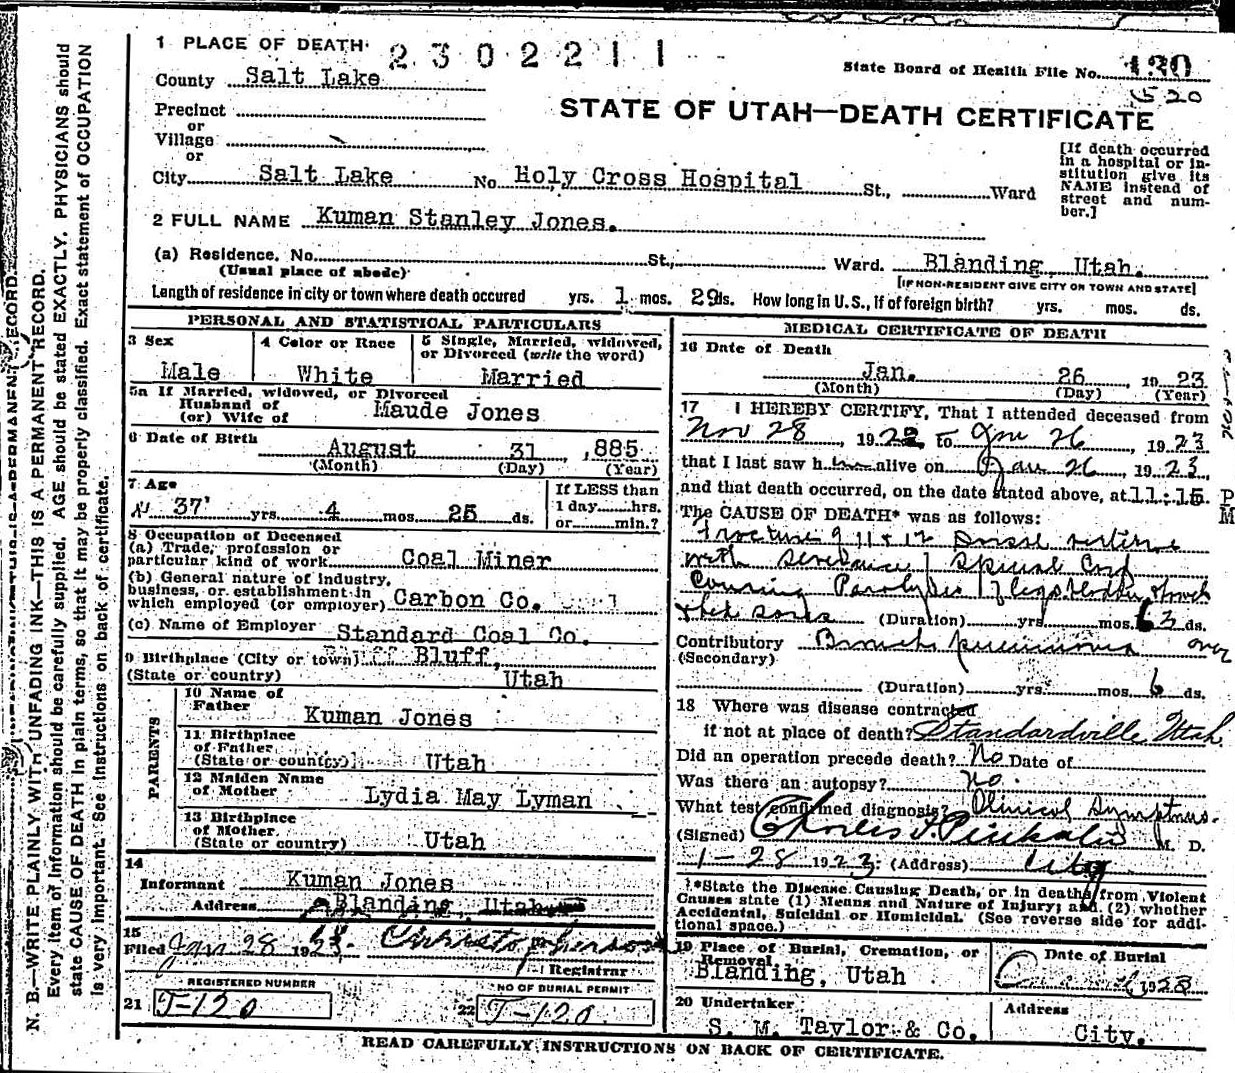 1 PLACE OF DEATH
2302211
State Board of Health File No. 130
520
County Salt Lake
STATE OF UTAH—DEATH CERTIFICATE
Precinct
or
Village
or
City Salt Lake No Holy Cross Hospital St., Ward
[If death occurred
in a hospital or in-
stitution give its
NAME instead of
street and num-
ber.]
2 FULL NAME Kuman Stanley Jones.
(a) Residence. No. St., Ward. Blanding, Utah.
(Usual place of abode)
[IF NON-RESIDENT GIVE CITY OR TOWN AND STATE]
Length of residence in city or town where death occured yrs. 1 mos. 29 ds. How long in U.S., if of foreign birth? yrs. mos. ds.
PERSONAL AND STATISTICAL PARTICULARS
3 Sex
Male
4 Color or Race
White
5 Single, Married, widowed,
or Divorced (write the word)
Married
5a If Married, widowed, or Divorced
Husband of
(or) Wife of Maude Jones
6 Date of Birth
August 31 ,885
(Month) (Day) (Year)
7 Age
37 yrs. 4 mos. 25 ds.
If LESS than
1 day hrs.
or min.?
8 Occupation of Deceased
(a) Trade, profession or
particular kind of work Coal Miner
(b) General nature of industry,
business, or establishment in
which employed (or employer) Carbon Co.
(c) Name of Employer Standard Coal Co.
9 Birthplace (City or town) Bluff,
(State or country) Utah
PARENTS
10 Name of
Father
Kuman Jones
11 Birthplace
of Father
(State or country) Utah
12 Maiden Name
of Mother
Lydia May Lyman
13 Birthplace
of Mother
(State or country) Utah
14
Informant Kuman Jones
Address Blanding, Utah
15
Filed Jan 28 19
Registrar
REGISTERED NUMBER
21 T-120
NO OF BURIAL PERMIT
22 T-120
MEDICAL CERTIFICATE OF DEATH
16 Date of Death
Jan. 26, 1923
(Month) (Day) (Year)
17 I HEREBY CERTIFY, That I attended deceased from
Nov 28, 1922 to Jan 26, 1923
that I last saw h alive on Jan 26, 1923,
and that death occurred, on the date stated above, at 11:15 P
M
The CAUSE OF DEATH* was as follows:
Fracture of 11 & 12 Dorsal
with severance of Spinal Cord
Causing Paralysis of legs bladder
& bed sores (Duration) yrs. mos. 63 ds.
Contributory Broncho pneumonia over
(Secondary)
(Duration) yrs. mos. 6 ds.
18 Where was disease contracted
if not at place of death? Standardville Utah
Did an operation precede death? No Date of
Was there an autopsy? no.
What test confirmed diagnosis? Clinical Symptoms.
(Signed) Charles M. D.
1-28 1923 (Address) City
*State the Disease Causing Death, or in deaths from Violent
Causes state (1) Means and Nature of Injury; and (2) whether
Accidental, Suicidal or Homicidal. (See reverse side for addi-
tional space.)
19 Place of Burial, Cremation, or
Removal
Blanding, Utah
Date of Burial
1923
20 Undertaker
S. M. Taylor & Co.
Address
City.
READ CAREFULLY INSTRUCTIONS ON BACK OF CERTIFICATE.
N. B.—WRITE PLAINLY, WITH UNFADING INK—THIS IS A PERMANENT RECORD.
Every item of information should be carefully supplied. AGE should be stated EXACTLY. PHYSICIANS should
state CAUSE OF DEATH in plain terms, so that it may be properly classified. Exact statement of OCCUPATION
is very important. See instructions on back of certificate.